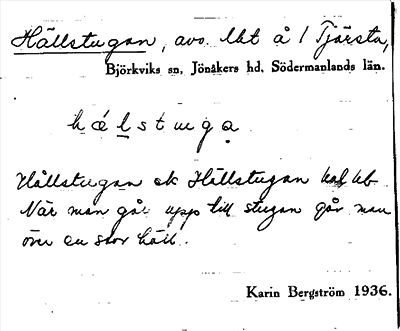 Hällstugan, avs. lht å 1 Tjärsta,
Björkviks sn, Jönåkers hd, Södermanlands län.
hǽlstuga
Hällstugan ek Hällstugan
När man går upp till stugan går man
över en stor häll.
Karin Bergström 1936.